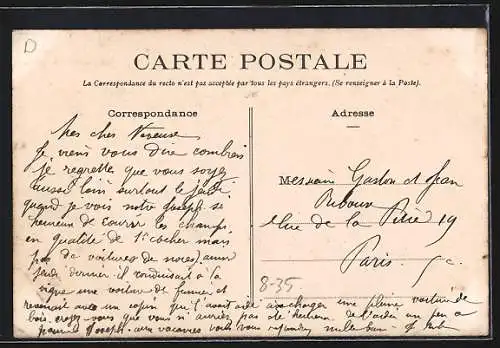 D
CARTE POSTALE
La Correspondance du recto n'est pas acceptée par tous les pays étrangers. (Se renseigner à la Poste).
Correspondance
Mes chers
Je viens vous dire combien
je regrette que vous soyez
aussi loin surtout le jeudi
quand je vois notre Joseph si
heureux de courir les champs
en qualité de 1r cocher mais
pas de voitures de noces, ainsi
jeudi dernier il conduisait à la
vigne une voiture de fumier et
revenait avec un copin qui l'avait aidé a charger une pleine voiture de
bois. croyez-vous que vous n'auriez pas de bonheur de l'aider un peu a
pauvre Joseph. aux vacances
Adresse
Messieurs Gaston et Jean
Rue de la Pitié 19
Paris. 5e.
8-35